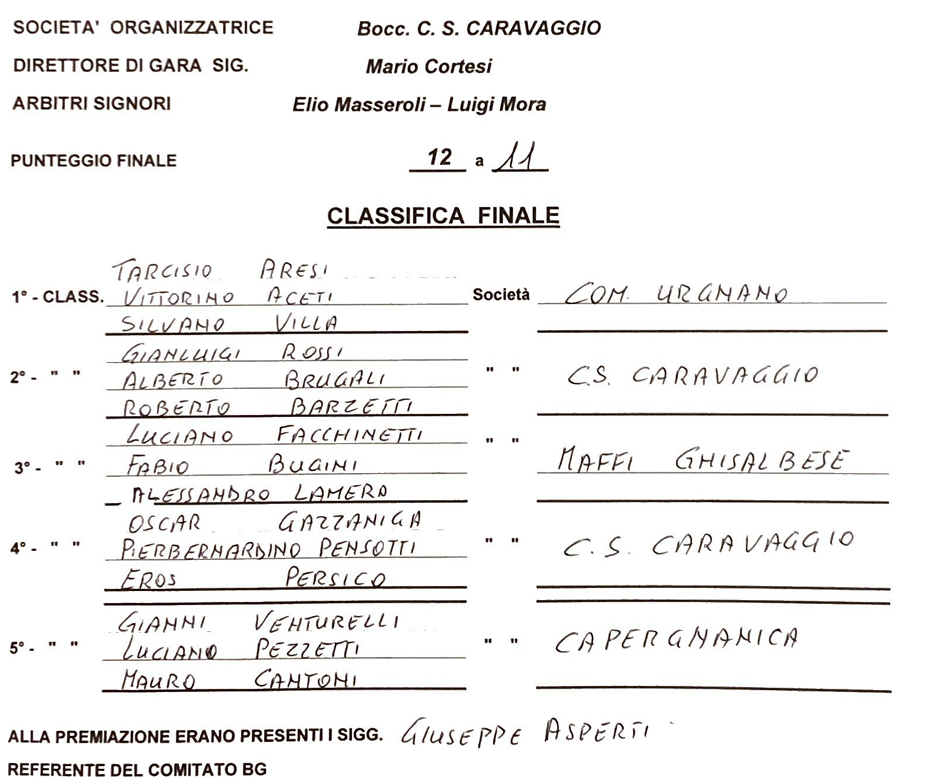 SOCIETA' ORGANIZZATRICE Bocc. C. S. CARAVAGGIO
DIRETTORE DI GARA SIG. Mario Cortesi
ARBITRI SIGNORI Elio Masseroli – Luigi Mora
PUNTEGGIO FINALE 12 a 11
CLASSIFICA FINALE
TARCISIO ARESI
1° - CLASS. VITTORINO ACETI Società COM. URGNANO
SILVANO VILLA
GIANLUIGI ROSSI
2° - " " ALBERTO BRUGALI " " C.S. CARAVAGGIO
ROBERTO BARZETTI
LUCIANO FACCHINETTI " "
3° - " " FABIO BUGINI MAFFI GHISALBESE
ALESSANDRO LAMERA
OSCAR GAZZANIGA
4° - " " PIERBERNARDINO PENSOTTI " " C.S. CARAVAGGIO
EROS PERSICO
GIANNI VENTURELLI
5° - " " LUCIANO PEZZETTI " " CAPERGNANICA
MAURO CANTONI
ALLA PREMIAZIONE ERANO PRESENTI I SIGG. GIUSEPPE ASPERTI
REFERENTE DEL COMITATO BG